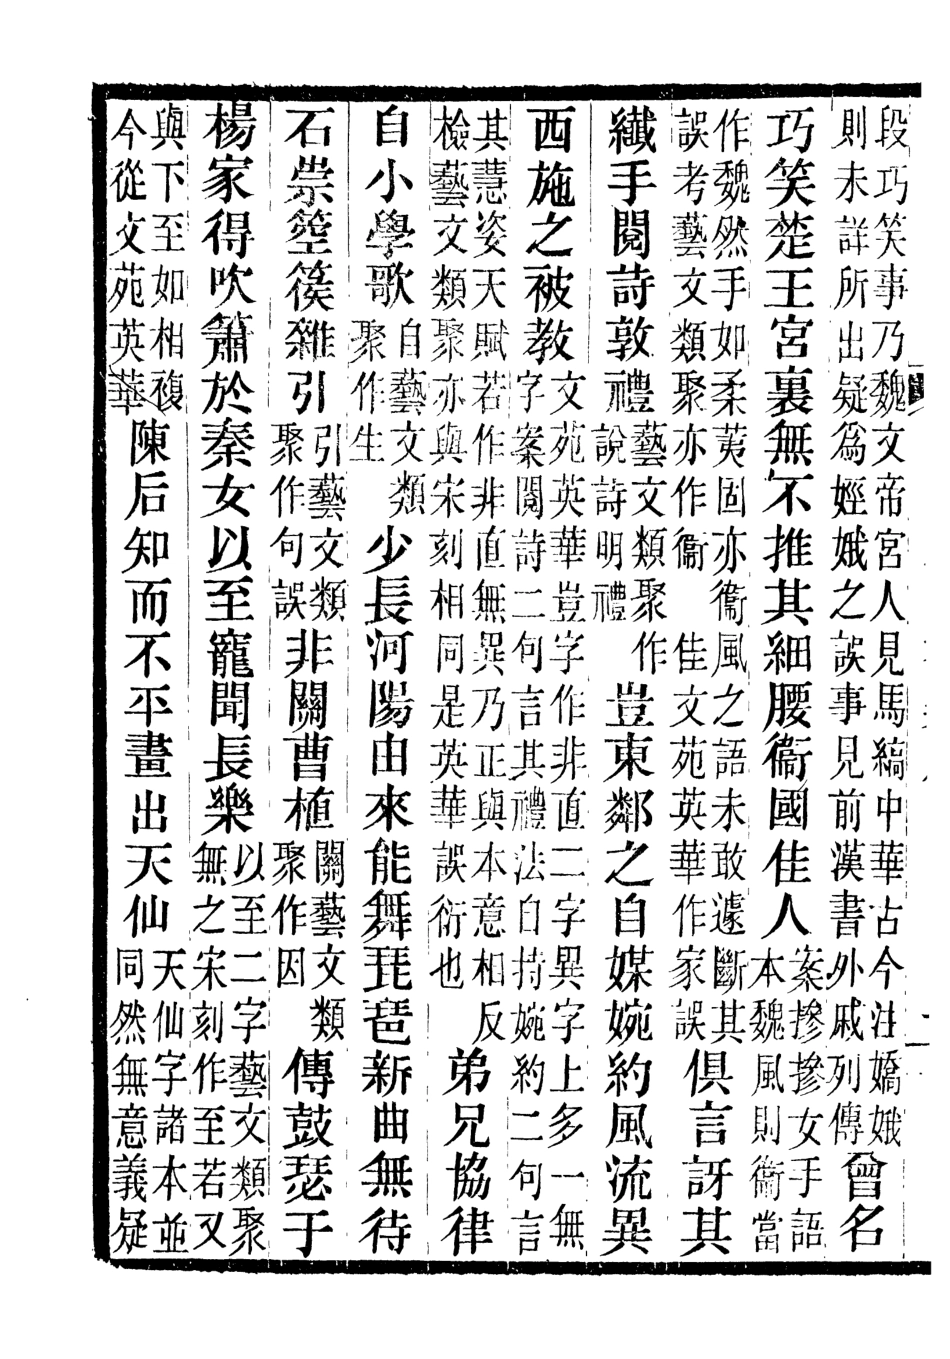 段巧笑事乃魏文帝宮人見馬縞中華古今注嬌娥則未詳所出疑爲娙娥之誤事見前漢書外戚列傳曾名
巧笑楚王宮裏無不推其細腰衞國佳人案摻摻女手語本魏風則衞當
作魏然手如柔荑固亦衞風之語未敢遽斷其誤考藝文類聚亦作衞 佳文苑英華作家誤俱言訝其
纖手閱詩敦禮藝文類聚作說詩明禮豈東鄰之自媒婉約風流異
西施之被教文苑英華豈字作非直二字異字上多一無字案閱詩二句言其禮法自持婉約二句言
其慧姿天賦若作非直無異乃正與本意相反檢藝文類聚亦與宋刻相同是英華誤衍也弟兄協律
自小學歌自藝文類聚作生少長河陽由來能舞琵琶新曲無待
石崇箜篌雜引引藝文類聚作句誤非關曹植關藝文類聚作因傳鼓瑟于
楊家得吹簫於秦女以至寵聞長樂以至二字藝文類聚無之宋刻作至若又
與下至如相複今從文苑英華陳后知而不平畫出天仙天仙字諸本並同然無意義疑